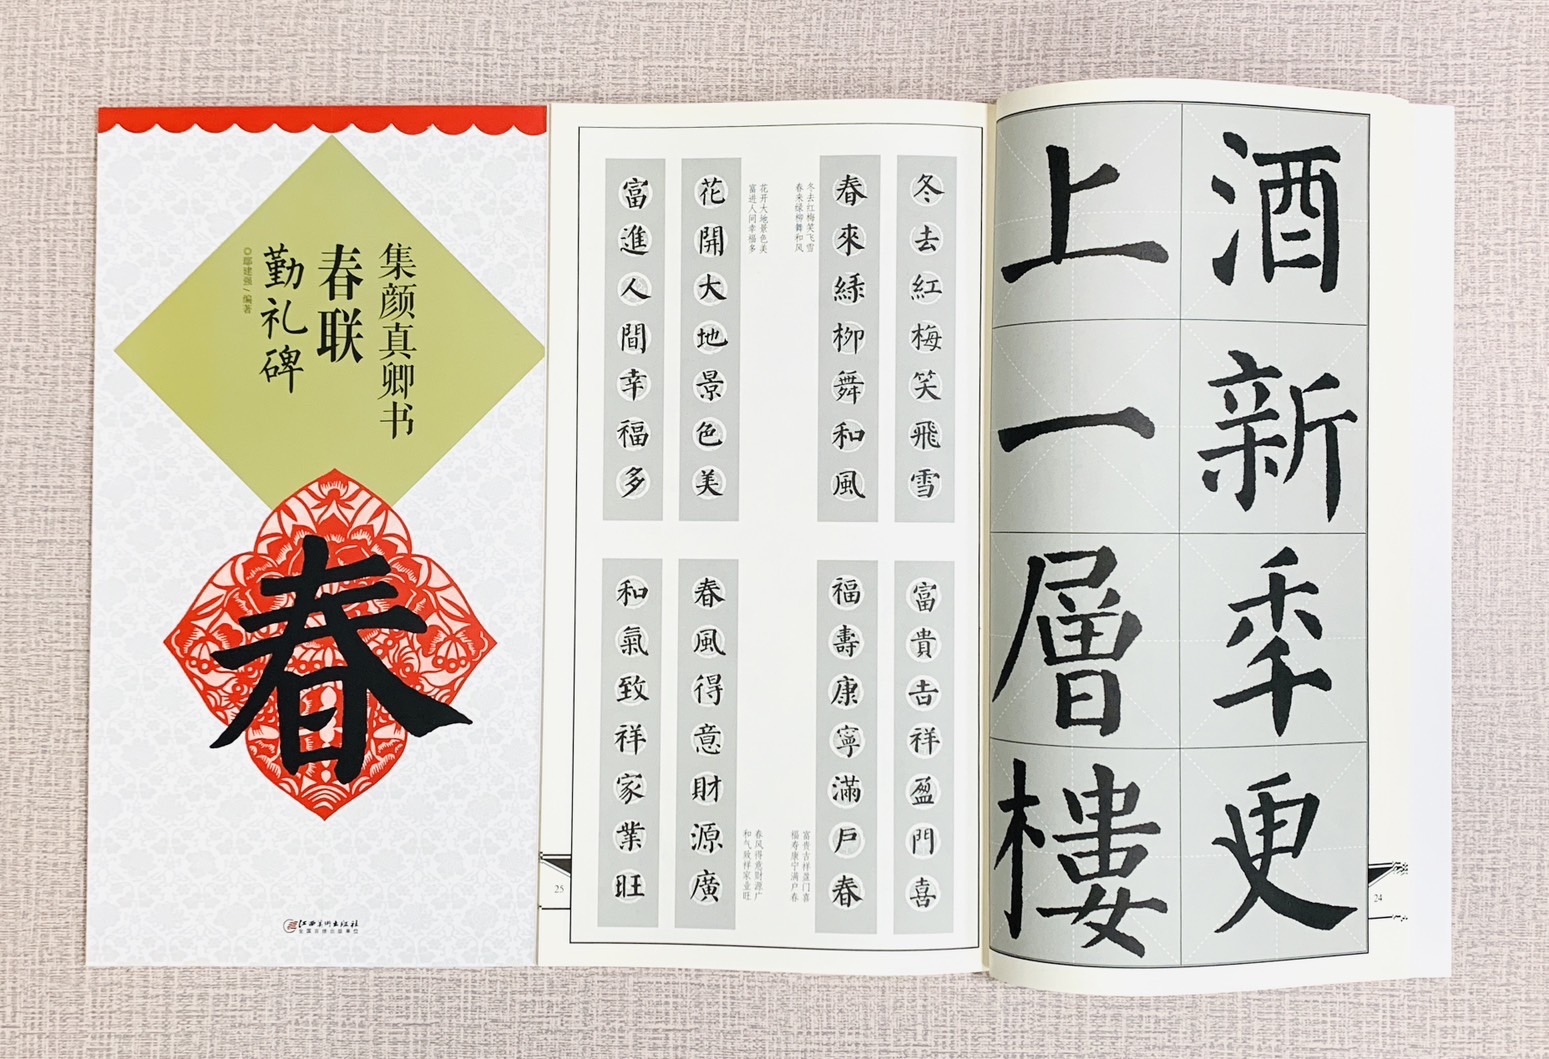 集颜真卿书
春联
勤礼碑
◎鄢建强/编著
春
江西美术出版社
全国百佳出版单位
酒新秊更
上一層樓
24
冬去紅梅笑飛雪
春來綠柳舞和風
冬去红梅笑飞雪
春来绿柳舞和风
花开大地景色美
富进人间幸福多
花開大地景色美
富進人間幸福多
富貴吉祥盈門喜
福壽康寧滿戶春
富贵吉祥盈门喜
福寿康宁满户春
春风得意财源广
和气致祥家业旺
春風得意財源廣
和氣致祥家業旺
25